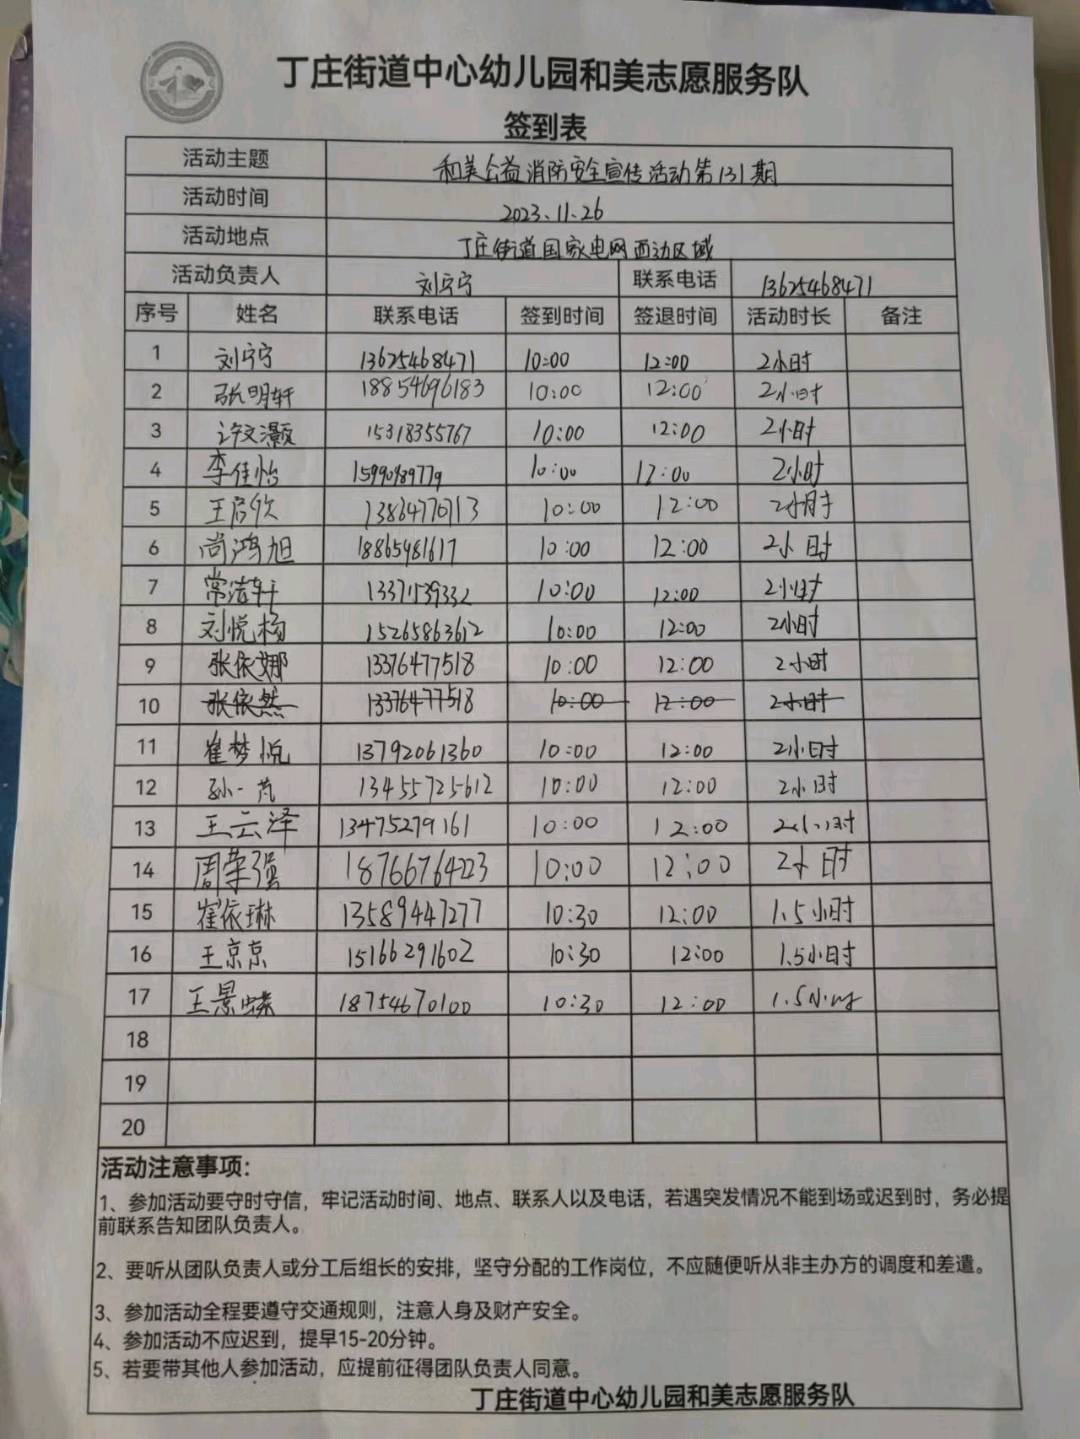 丁庄街道中心幼儿园和美志愿服务队
签到表
活动主题 和美公益消防安全宣传活动第131期
活动时间 2023.11.26
活动地点 丁庄街道国家电网西边区域
活动负责人 刘宁宁 联系电话 13625468471
序号 姓名 联系电话 签到时间 签退时间 活动时长 备注
1 刘宁宁 13625468471 10:00 12:00 2小时
2 张明轩 18854696183 10:00 12:00 2小时
3 许文灏 15318355767 10:00 12:00 2小时
4 李佳怡 15990989779 10:00 12:00 2小时
5 王启钦 13864770713 10:00 12:00 2小时
6 尚鸿旭 18865481617 10:00 12:00 2小时
7 常洁轩 13371539332 10:00 12:00 2小时
8 刘悦杨 15265863612 10:00 12:00 2小时
9 张依娜 13376477518 10:00 12:00 2小时
10 张依然 13376477518 10:00 12:00 2小时
11 崔梦悦 13792061360 10:00 12:00 2小时
12 孙一芃 13455725612 10:00 12:00 2小时
13 王云泽 13475279161 10:00 12:00 2小时
14 周荣强 18766764223 10:00 12:00 2小时
15 崔依琳 13589447277 10:30 12:00 1.5小时
16 王京京 15166291602 10:30 12:00 1.5小时
17 王景蝶 18754670100 10:30 12:00 1.5小时
18
19
20
活动注意事项：
1、参加活动要守时守信，牢记活动时间、地点、联系人以及电话，若遇突发情况不能到场或迟到时，务必提
前联系告知团队负责人。
2、要听从团队负责人或分工后组长的安排，坚守分配的工作岗位，不应随便听从非主办方的调度和差遣。
3、参加活动全程要遵守交通规则，注意人身及财产安全。
4、参加活动不应迟到，提早15-20分钟。
5、若要带其他人参加活动，应提前征得团队负责人同意。
丁庄街道中心幼儿园和美志愿服务队